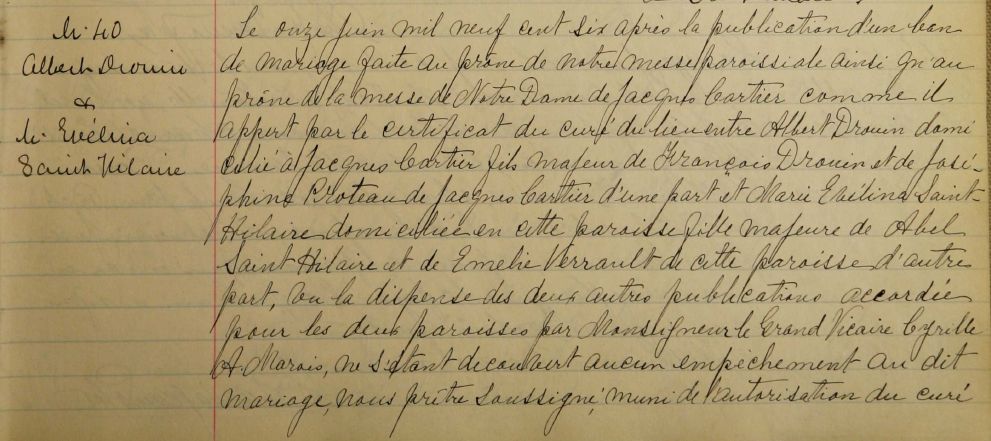 M. 40
Albert Drouin
&
M. Evélina
Saint Hilaire
Le onze juin mil neuf cent six après la publication d'un ban
de mariage faite au prône de notre messe paroissiale ainsi qu'au
prône de la messe de Notre Dame de Jacques Cartier comme il
appert par le certificat du curé du lieu entre Albert Drouin domi
cilié à Jacques Cartier fils majeur de François Drouin et de José-
phine Proteau de Jacques Cartier d'une part et Marie Evélina Saint-
Hilaire domiciliée en cette paroisse fille majeure de Abel
Saint Hilaire et de Emelie Verrault de cette paroisse d'autre
part, vu la dispense des deux autres publications accordée
pour les deux paroisses par Monseigneur le Grand Vicaire Cyrille
A. Marois, ne s'étant découvert aucun empêchement au dit
mariage, nous prêtre soussigné, muni de l'autorisation du curé